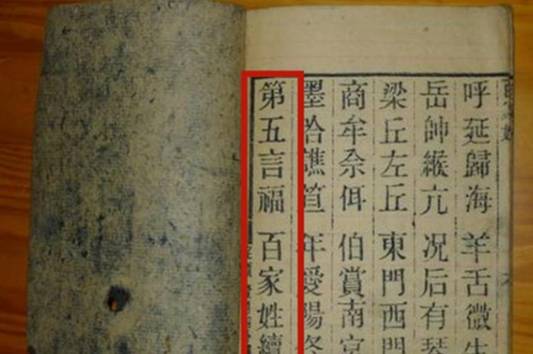 呼延歸海 羊舌微生
岳帥緱亢 況后有琴
梁丘左丘 東門西門
商牟佘佴 伯賞南宮
墨哈譙笪 年愛陽佟
第五言福 百家姓續